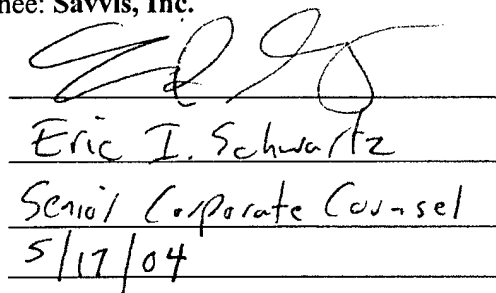 nee: Savvis, Inc.
Eric I. Schwartz
Senior Corporate Counsel
5/17/04